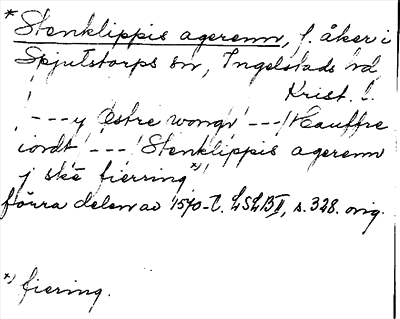 * Stenklippis agerenn, f. åker i
Spjutstorps sn, Ingelstads hd,
Krist. l.
! ---y Østre wongr ---! Kauffre
iordt --- ! Stenklippis agerenn
j ske fierring*)!
förra delen av 1570-t. LSLB II, s. 328. orig.
*) fiering.